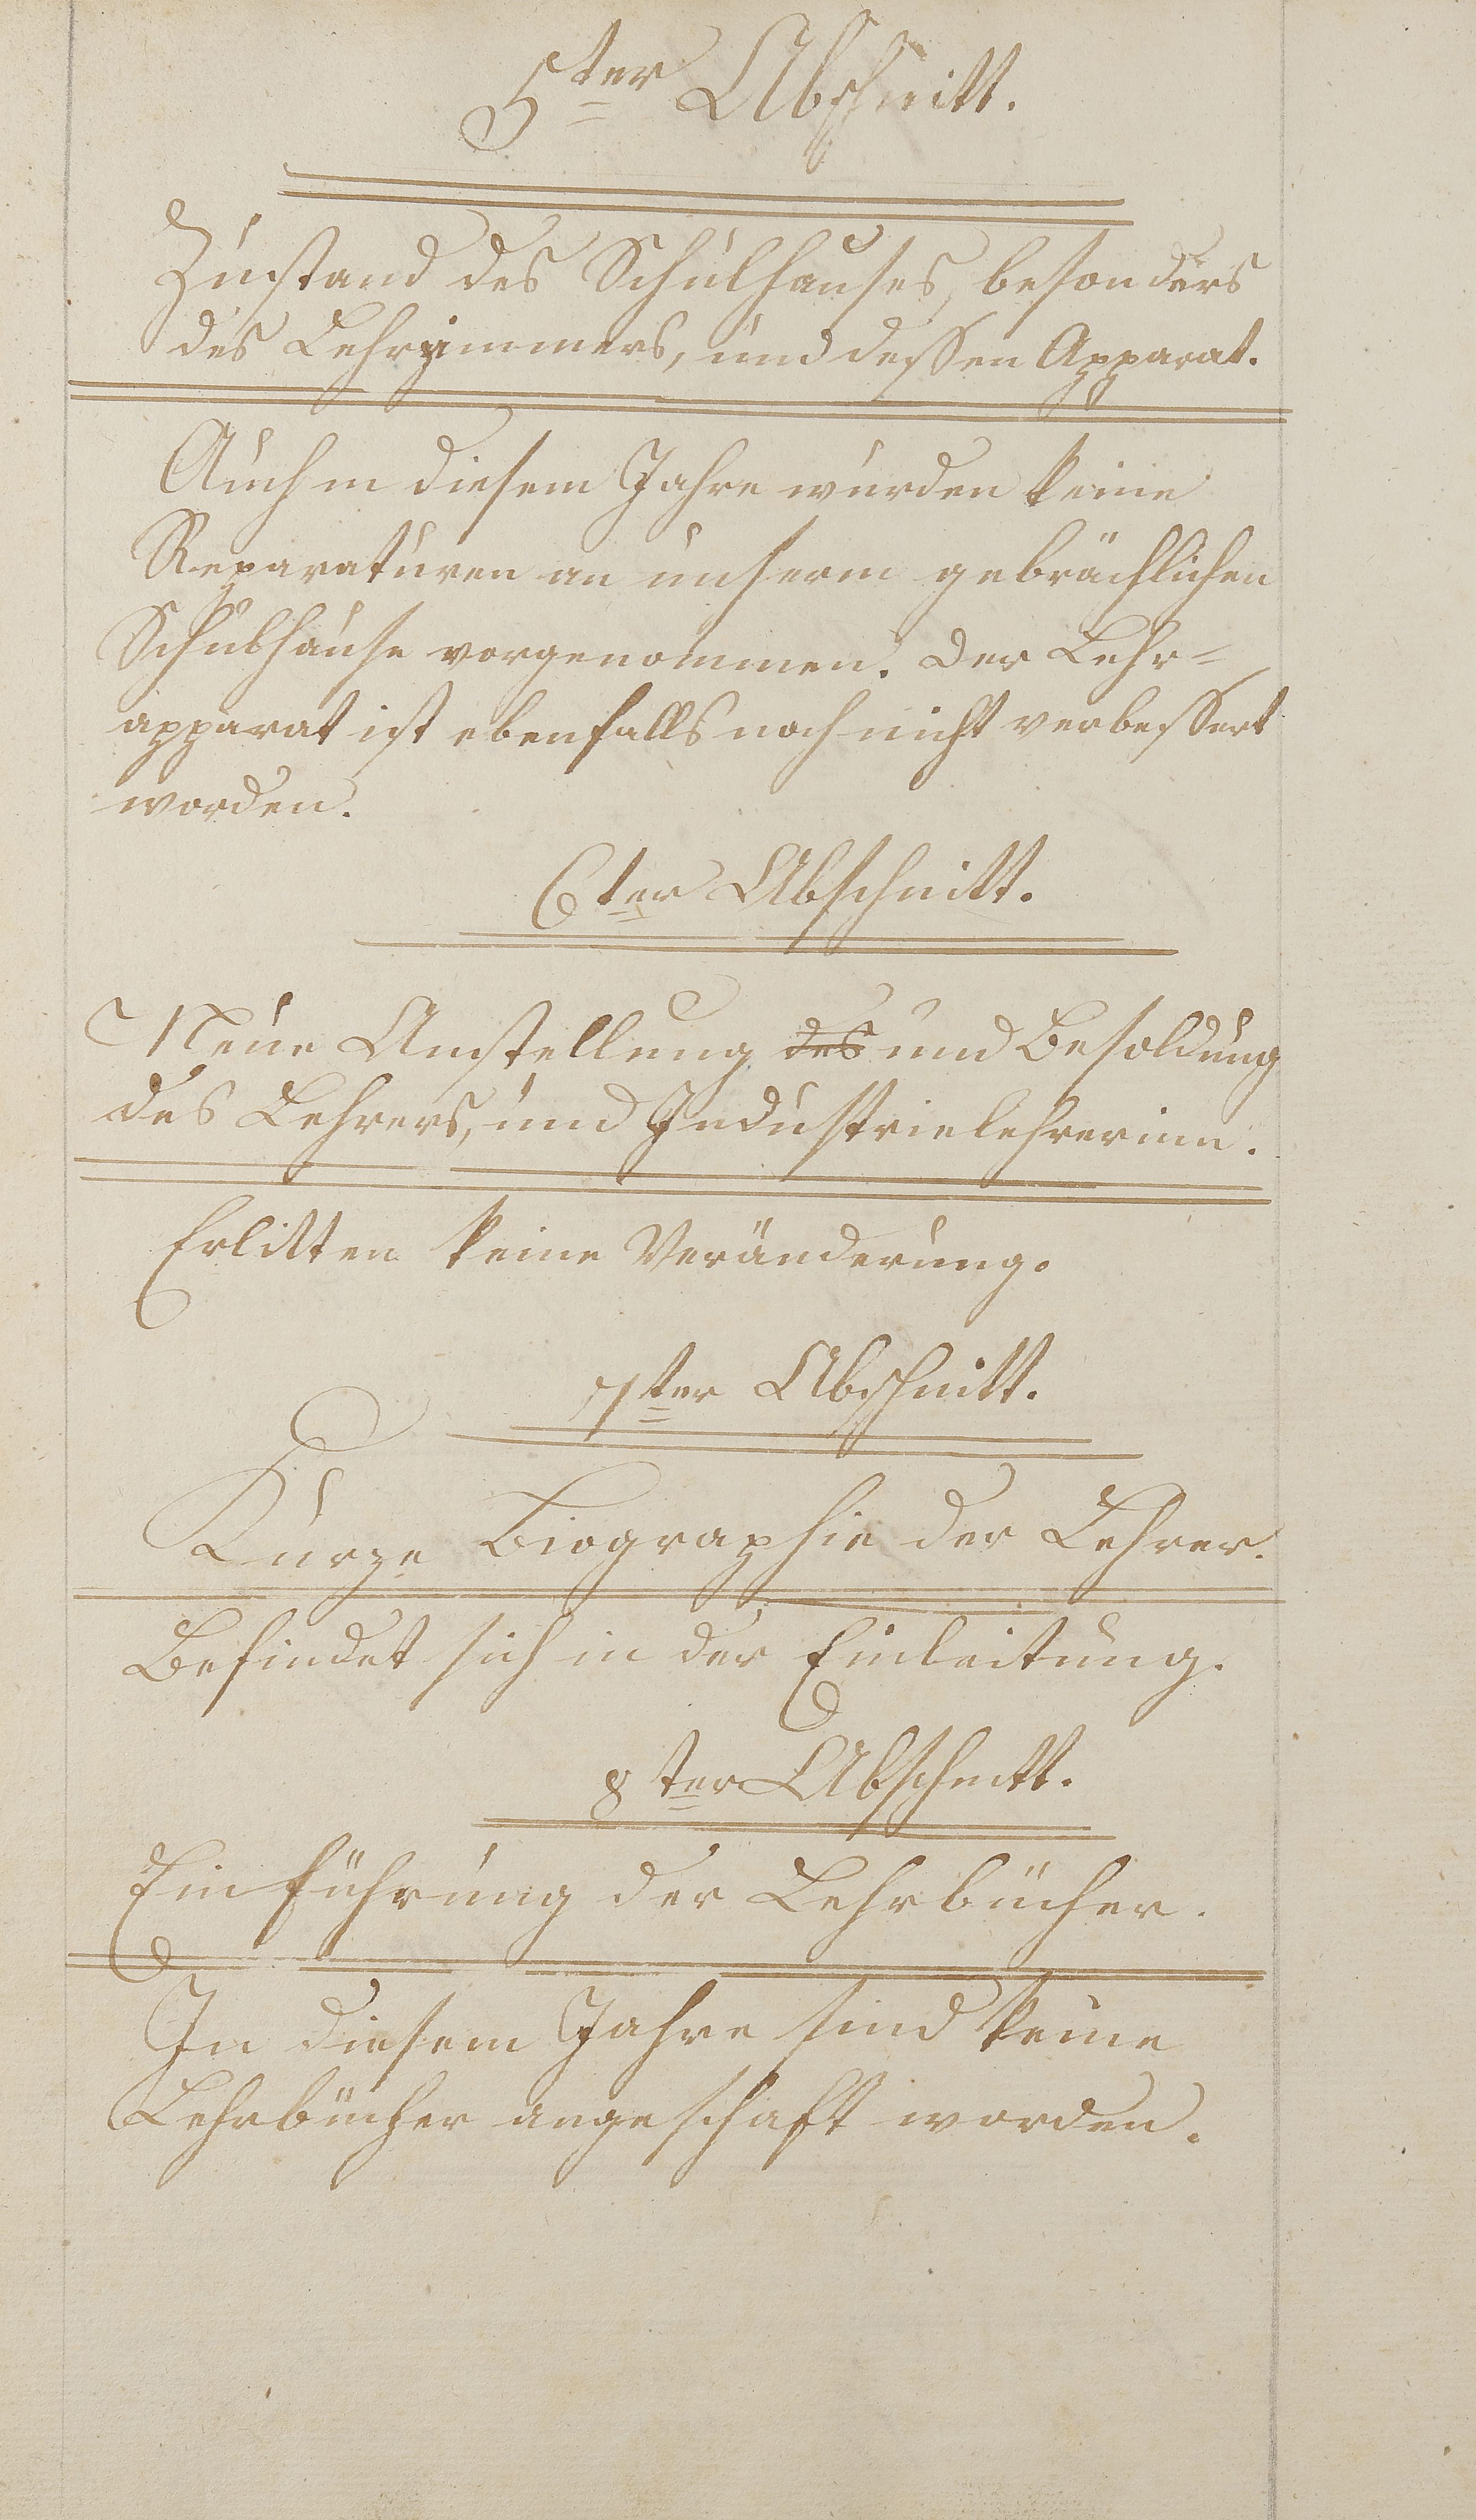 5ter Abschnitt.
Zustand des Schulhauses, besonders
des Lehrzimmers, und dessen Apparat.
Auch in diesem Jahre wurden keine
Reparaturen an unserm gebrächlichen
Schulhause vorgenommen. Der Lehr=
apparat ist ebenfalls noch nicht verbessert
worden.
6ter Abschnitt.
Neue Anstellung des und Besoldung
des Lehrers, und Industrielehrerinn.
Erlitten keine Veränderung.
7ter Abschnitt.
Kurze Biographie der Lehrer.
Befindet sich in der Einleitung.
8ter Abschnitt.
Einführung der Lehrbücher.
In diesem Jahre sind keine
Lehrbücher angeschaft worden.